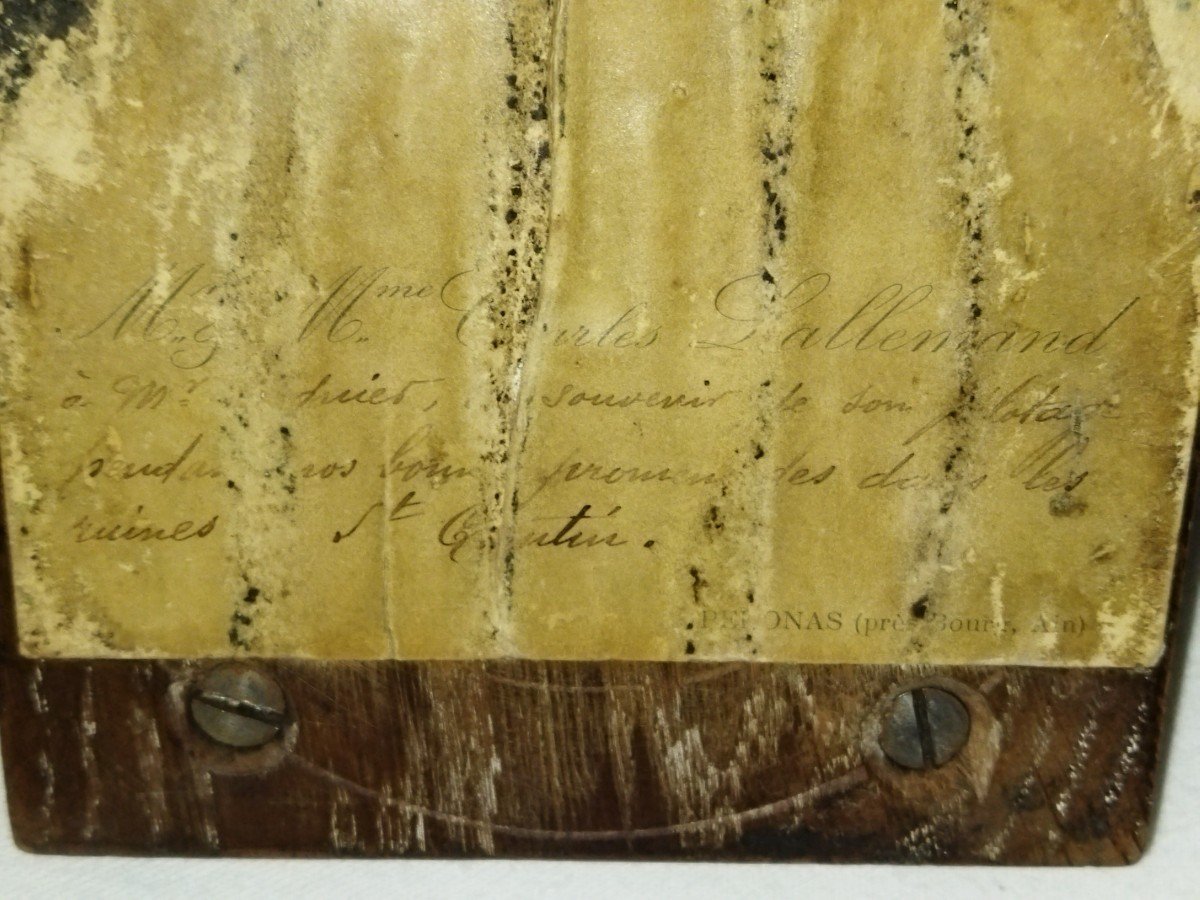 Mr & Mme Charles Lallemand
à Mr souvenir de son pilotage
pendant nos bonnes promenades dans les
ruines St Quentin.
PERONAS (près Bourg, Ain)